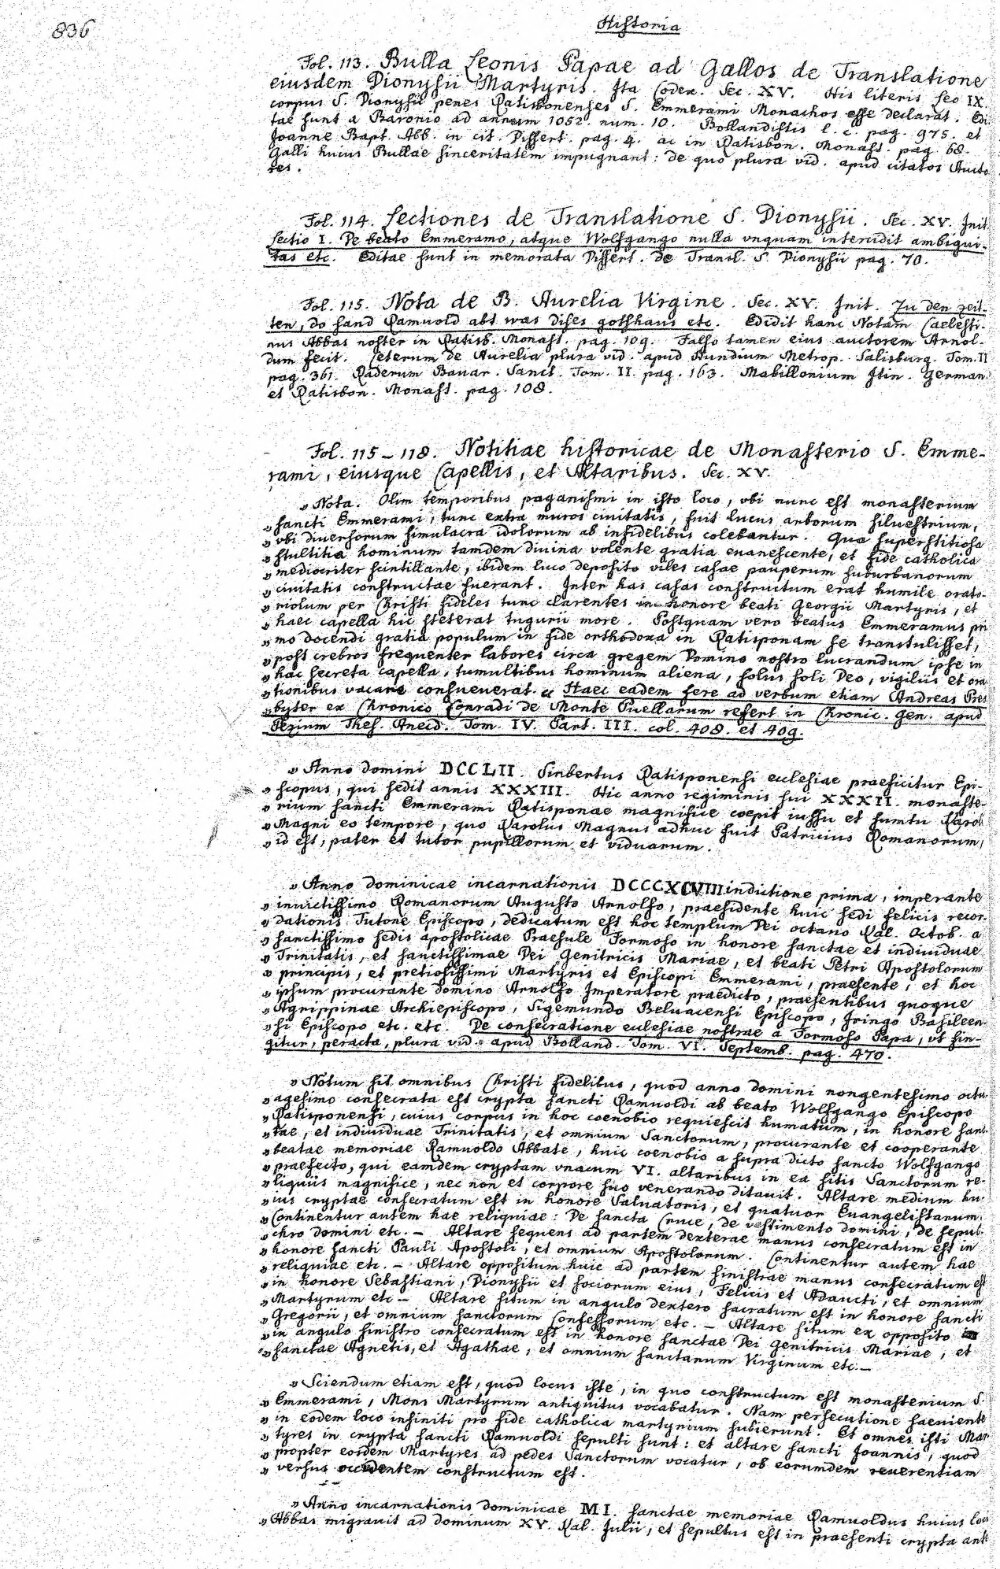 836
Historia
Fol. 113. Bulla Leonis Papae ad Gallos de Translatione
eiusdem Dionysii Martyris. Ita Codex. Sec. XV. His literis Leo IX.
corpus S. Dionysii penes Ratisbonenses S. Emmerami Monachos esse declarat. Edi-
tae sunt a Baronio ad annum 1052. num. 10. Bollandistis l. c. pag. 975. et
Joanne Bapt. Abb. in cit. Dissert. pag. 4. ac in Ratisbon. Monast. pag. 68.
Galli huius Bullae sinceritatem impugnant: de quo plura vid. apud citatos Aucto-
res.
Fol. 114. Lectiones de Translatione S. Dionysii. Sec. XV. Init.
Lectio I. De beato Emmeramo, atque Wolfgango nulla vnquam intercidit ambigui-
tas etc. Editae sunt in memorata Dissert. de Transl. S. Dionysii pag. 70.
Fol. 115. Nota de B. Aurelia Virgine. Sec. XV. Init. Zu den zeit-
ten, do sand Ramuold abt was dises gotshaus etc. Edidit hanc Notam Caelesti-
nus Abbas noster in Ratisb. Monast. pag. 109. Falso tamen eius auctorem Arnol-
dum fecit. Ceterum de Aurelia plura vid. apud Hundium Metrop. Salisburg. Tom. II
pag. 361. Raderum Bauar. Sanct. Tom. II. pag. 163. Mabillonium Itin. German.
et Ratisbon. Monast. pag. 108.
Fol. 115–118. Notitiae historicae de Monasterio S. Emme-
rami, eiusque Capellis, et Altaribus. Sec. XV.
„Nota. Olim temporibus paganismi in isto loco, vbi nunc est monasterium
„sancti Emmerami, tunc extra muros ciuitatis, fuit lucus arborum siluestrium,
„vbi diuersorum simulacra idolorum ab infidelibus colebantur. Qua superstitiosa
„stultitia hominum tamdem diuina volente gratia euanescente, et fide catholica
„mediocriter scintillante, ibidem luco deposito viles casae pauperum suburbanorum
„ciuitatis constructae fuerant. Inter has casas constructum erat humile orato-
„riolum per Christi fideles tunc clarentes in honore beati Georgii Martyris, et
„haec capella hic steterat tugurii more. Postquam vero beatus Emmeramus pri-
„mo docendi gratia populum in fide orthodoxa in Ratisponam se transtulisset,
„post crebros frequenter labores circa gregem Domino nostro lucrandum ipse in
„hac secreta capella, tumultibus hominum aliena, solus soli Deo, vigiliis et ora-
„tionibus vacare consueuerat. „ Haec eadem fere ad verbum etiam Andreas Pres-
„byter ex Chronico Conradi de Monte Puellarum refert in Chronic. Gen. apud
Pezium Thes. Anecd. Tom. IV. Part. III. col. 408. et 409.
„Anno domini DCCLII. Sinbertus Ratisponensi ecclesiae praeficitur Epi-
„scopus, qui sedit annis XXXIII. Hic anno regiminis sui XXXII. monaste-
„rium sancti Emmerami Ratisponae magnifice coepit iussu et sumtu Karoli
„Magni eo tempore, quo Karolus Magnus adhuc fuit Patricius Romanorum,
„id est, pater et tutor pupillorum et viduarum.
„Anno dominicae incarnationis DCCCXCVIII indictione prima, imperante
„inuictissimo Romanorum Augusto Arnolfo, praesidente huic sedi felicis recor-
„dationis Tutone Episcopo, dedicatum est hoc templum Dei octauo Kal. Octob. a
„sanctissimo sedis apostolicae Praesule Formoso in honore sanctae et indiuiduae
„Trinitatis, et sanctissimae Dei Genitricis Mariae, et beati Petri Apostolorum
„principis, et pretiosissimi Martyris et Episcopi Emmerami, praesente, et hoc
„ipsum procurante domino Arnolfo Imperatore praedicto, praesentibus quoque
„Agrippinae Archiepiscopo, Sigemundo Beluacensi Episcopo, Iringo Basileen-
„si Episcopo etc. etc. De consecratione ecclesiae nostrae a Formoso Papa, vt fin-
gitur, peracta, plura vid. apud Bolland. Tom. VI. Septemb. pag. 470.
„Notum sit omnibus Christi fidelibus, quod anno domini nongentesimo octu-
„agesimo consecrata est crypta sancti Ramuoldi ab beato Wolfgango Episcopo
„Ratisponensi, cuius corpus in hoc coenobio requiescit humatum, in honore sanc-
„tae, et indiuiduae Trinitatis, et omnium Sanctorum, procurante et cooperante
„beatae memoriae Ramuoldo Abbate, huic coenobio a supra dicto sancto Wolfgango
„praefecto, qui eamdem cryptam vnacum VI. altaribus in ea sitis Sanctorum re-
„liquiis magnifice, nec non et corpore suo venerando ditauit. Altare medium hu-
„ius cryptae consecratum est in honore Saluatoris, et quatuor Euangelistarum.
„Continentur autem hae reliquiae: De sancta Cruce, de vestimento domini, de sepul-
„chro domini etc. – Altare sequens ad partem dexterae manus consecratum est in
„honore sancti Pauli Apostoli, et omnium Apostolorum. Continentur autem hae
„reliquiae etc. – Altare oppositum huic ad partem sinistrae manus consecratum est
„in honore Sebastiani, Dionysii et sociorum eius, Felicis et Adaucti, et omnium
„Martyrum etc – Altare situm in angulo dextero sacratum est in honore sancti
„Gregorii, et omnium sanctorum Confessorum etc. – Altare situm ex opposito
„in angulo sinistro consecratum est in honore sanctae Dei Genitricis Mariae, et
„sanctae Agnetis, et Agathae, et omnium sanctarum Virginum etc. –
„Sciendum etiam est, quod locus iste, in quo constructum est monasterium S.
„Emmerami, Mons Martyrum antiquitus vocabatur. Nam persecutione saeuiente
„in eodem loco infiniti pro fide catholica martyrium subierunt. Et omnes isti Mar-
„tyres in crypta sancti Ramuoldi sepulti sunt: et altare sancti Joannis, quod
„propter eosdem Martyres ad pedes Sanctorum vocatur, ob eorumdem reuerentiam
„versus occidentem constructum est.
„Anno incarnationis dominicae MI. sanctae memoriae Ramuoldus huius loci
„Abbas migrauit ad dominum XV. Kal. Julii, et sepultus est in praesenti crypta ante